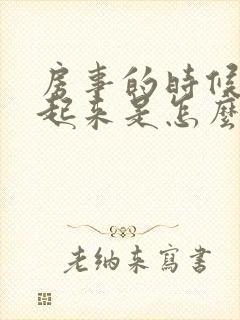 房事的時候
起來是怎麼
老纳来寫書